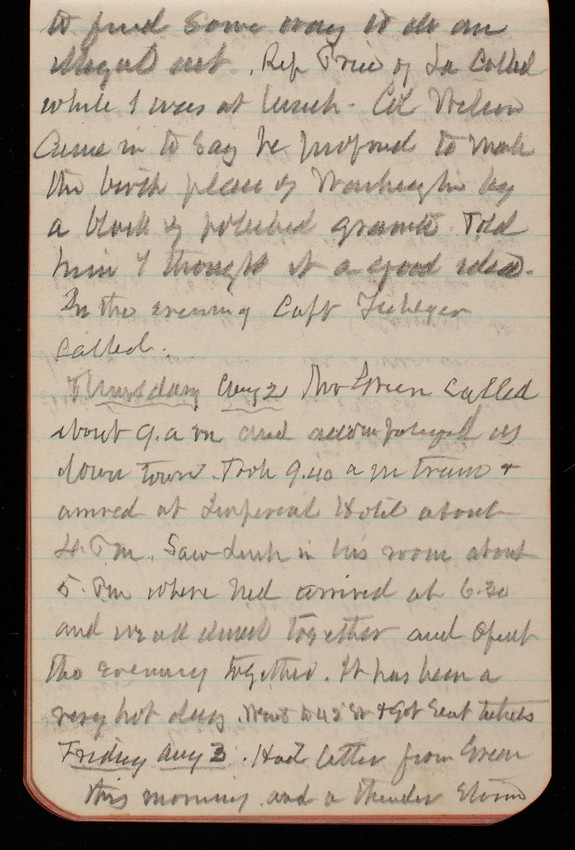 to find some way to do an
illegal act. Rep Price of La Called
while I was at lunch - Col Wilson
Came in to Say he proposed to mark
the birth place of Washington by
a block of polished granite. Told
him I thought it a good idea.
In the evening Capt
called.
Thursday Aug 2 Mr Green Called
about 9. a m and accompanied us
down town. Took 9.40 a m train &
arrived at Imperial Hotel about
4. P.m. Saw in his room about
5. Pm where Ned arrived at 6.30
and we all dined together and Spent
the evening together. It has been a
very hot day. Went to 42 St & Got Seat tickets
Friday Aug 3. Had letter from Green
this morning and a thunder Storm